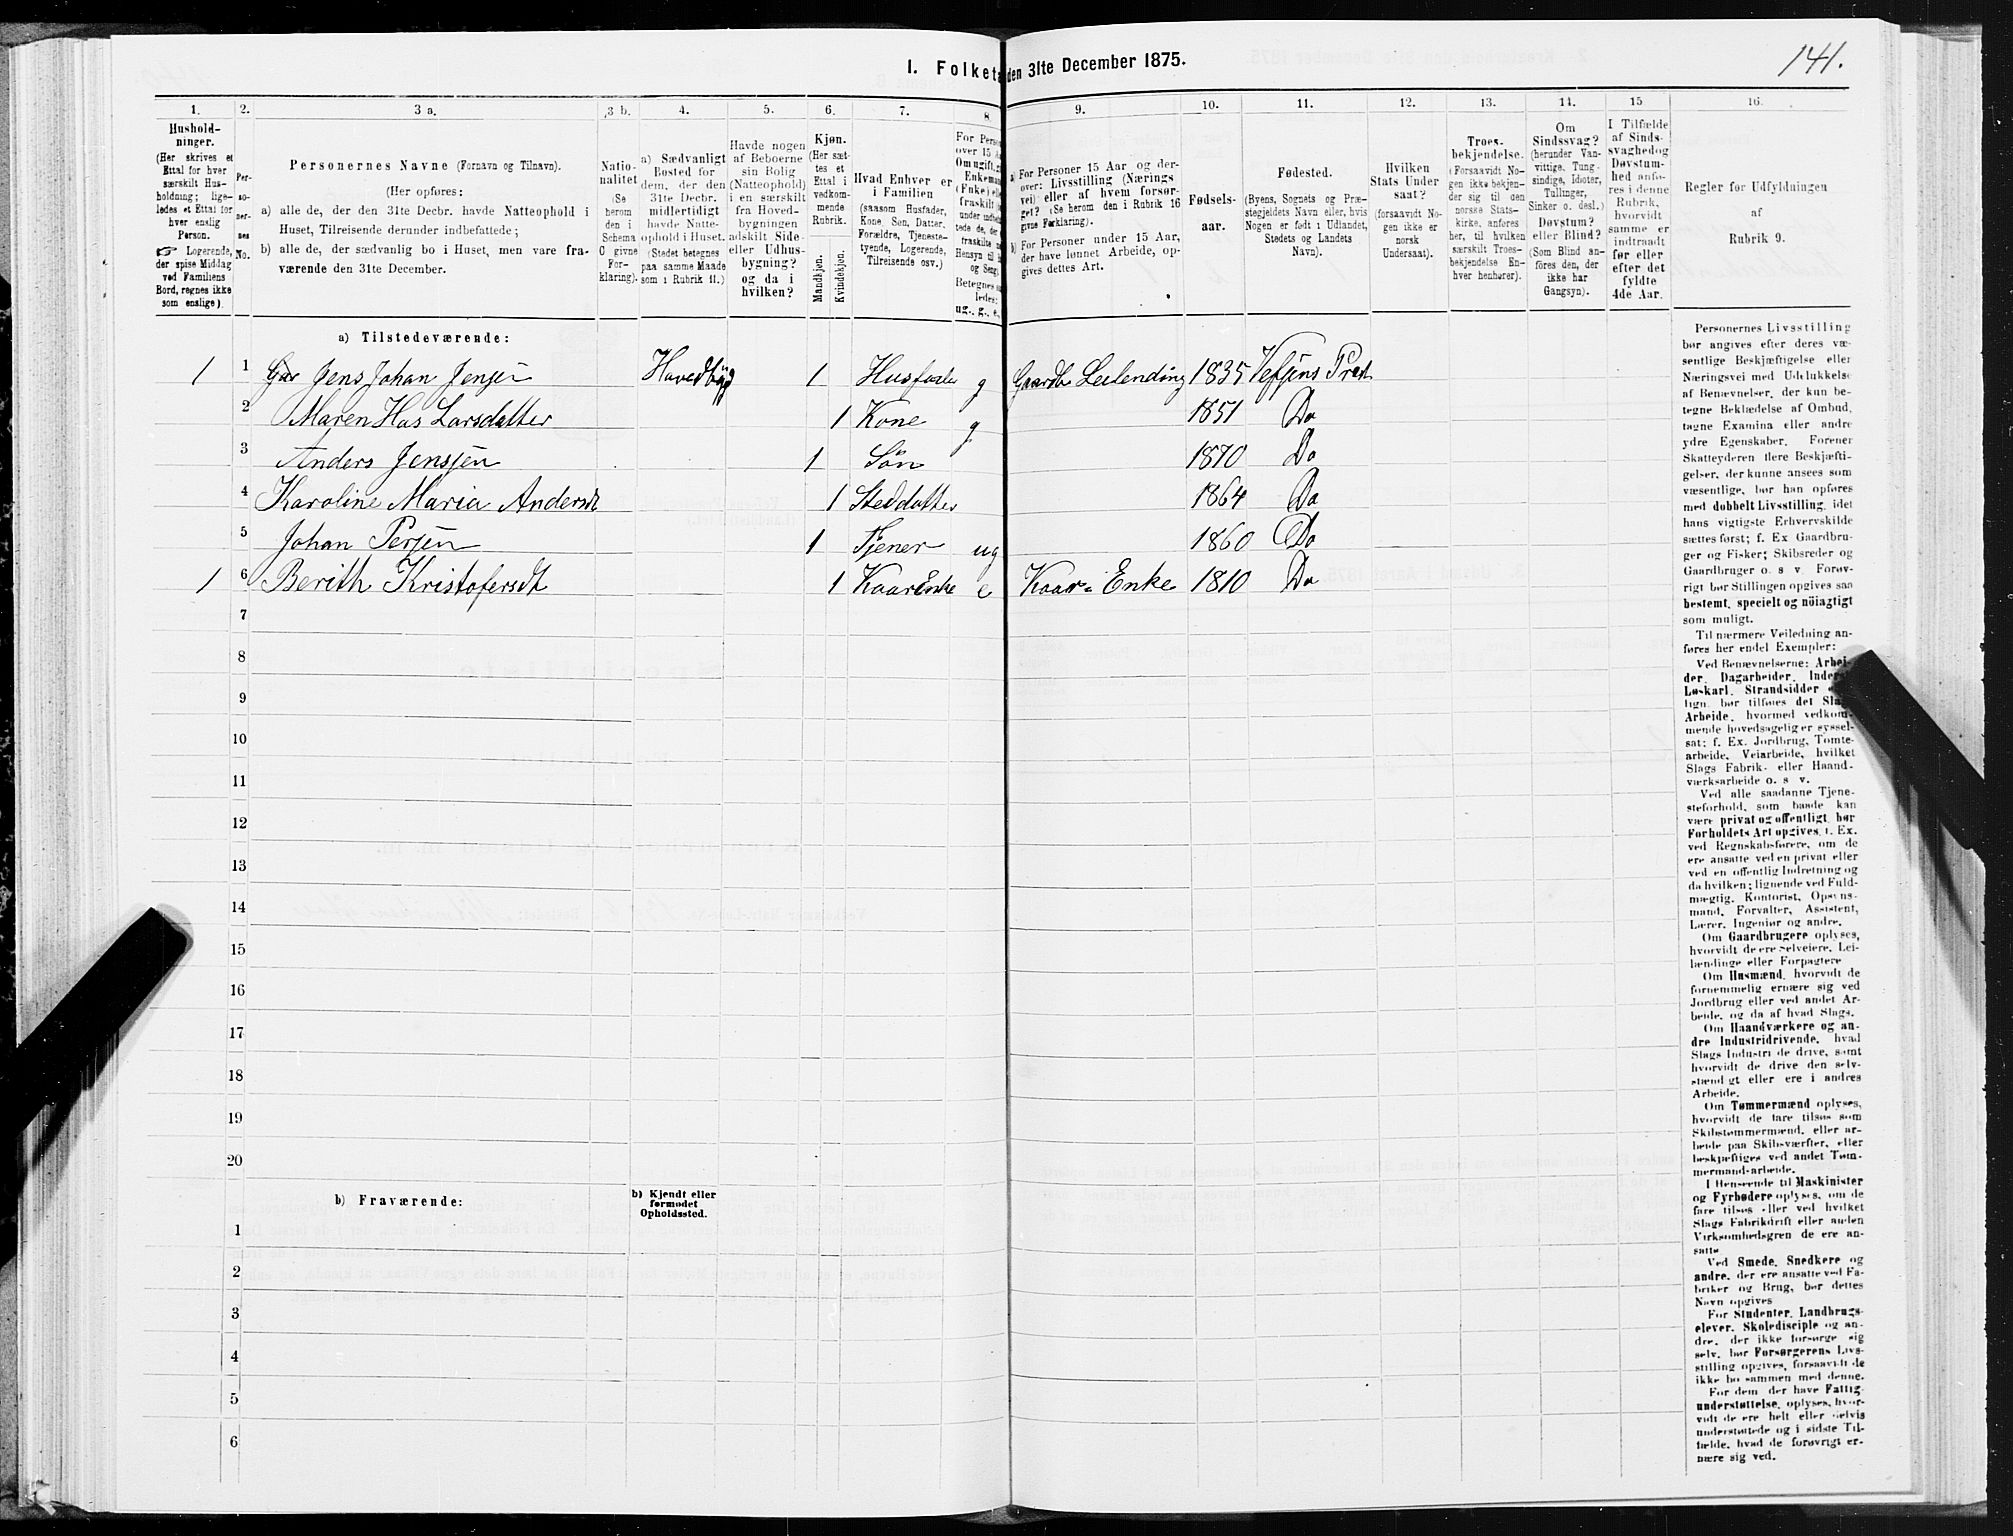 141.
I. Folketæ den 31te December 1875.
1. 2. 3 a. 3 b. 4. 5. 6. 7. 8. 9. 10. 11. 12. 13. 14. 15 16.
Hushold-
ninger.
(Her skrives et
Ettal for hver
særskilt Hus-
holdning; lige-
ledes et Ettal for
hver enslig
Person.
Logerende,
der spise Middag
ved Familiens
Bord, regnes ikke
som enslige).
Per-
so-
ner-
nes
No.
Personernes Navne (Fornavn og Tilnavn).
(Her opføres:
a) alle de, der den 31te Decbr. havde Natteophold i
Huset, Tilreisende derunder indbefattede;
b) alle de, der sædvanlig bo i Huset, men vare fra-
værende den 31te December.
Natio-
nalitet
(Se
herom
den i
Schema
C givne
For-
klaring).
a) Sædvanligt
Bosted for
dem, der den
31te Decbr.
midlertidigt
havde Natte-
ophold i Huset.
(Stedet betegnes
paa samme Maade
som i Rubrik 11.)
Havde nogen
af Beboerne
sin Bolig
(Natteophold)
i en særskilt
fra Hoved-
bygningen
adskilt Side-
eller Udhus-
bygning?
og da i
hvilken?
Kjøn.
(Her sæt-
tes et
Ettal i
vedkom-
mende
Rubrik.
Mandkjøn.
Kvindekjøn.
Hvad Enhver er
i Familien
(saasom Husfader,
Kone, Søn, Datter,
Forældre, Tjeneste-
tyende, Logerende,
Tilreisende osv.)
For Perso
over 15 A
Om ugift, gi
Enkeman
(Enke) ell
fraskilt
ug., g., e.,
a) For Personer 15 Aar og der-
over: Livsstilling (Nærings
vei) eller af hvem forsør-
get? (Se herom den i Rubrik 16
givne Forklaring).
b) For Personer under 15 Aar,
der have lønnet Arbeide, op-
gives dettes Art.
Fødsels-
aar.
Fødested.
(Byens, Sognets og Præ-
stegjeldets Navn eller, hvis
Nogen er født i Udlandet,
Stedets og Landets
Navn).
Hvilken
Stats Under
saat?
(forsaavidt No-
gen ikke er
norsk
Undersaat).
Troes-
bekjendelse.
(Forsaavidt No-
gen ikke bekjen-
der sig til den
norske Stats-
kirke, anføres
her, til hvilken
særskilt Troes-
bekjendelse En-
hver henhører).
Om
Sindssvag?
(herunder Van-
vittige, Tung-
sindige, Idioter,
Tullinger,
Sinker o. desl.)
Døvstum?
eller Blind?
(Som Blind an-
føres den, der
ikke har
Gangsyn).
I Tilfælde
af Sinds-
svaghed og
Døvstum-
hed anfø-
res i denne
Rubrik,
hvorvidt
samme er
indtraadt
før eller
efter det
fyldte
4de Aar.
Regler for Udfyldningen
af
Rubrik 9.
a) Tilstedeværende:
1 1 Gsr Jens Johan Jensen Hovedbyg 1 Husfader g Gaardb Leilending 1835 Vefsens Præst
2 Maren Has Larsdatter 1 Kone g 1851 Do
3 Anders Jensen 1 Søn 1870 Do
4 Karoline Maria Andersdt 1 Steddatter 1864 Do
5 Johan Persen 1 Tjener ug 1860 Do
1 6 Berith Kristofersdt 1 Kaarenke e Kaar- Enke 1810 Do
7
8
9
10
11
12
13
14
15
16
17
18
19
20
b) Fraværende:
b) Kjendt eller
formodet
Opholdssted.
1
2
3
4
5
6
Personernes Livsstilling
bør angives efter deres væ-
sentlige Beskjæftigelse eller
Næringsvei med Udelukkelse
af Benævnelser, der kun be-
tegne Beklædelse af Ombud,
tagne Examina eller andre
ydre Egenskaber. Forener
Skatteyderen flere Beskjæfti-
gelser, der kunne ansees som
væsentlige, bør han opføres
med dobbelt Livsstilling, idet
hans vigtigste Erhvervskilde
sættes først; f. Ex Gaardbru-
ger og Fisker; Skibsreder og
Gaardbruger o. s v. Forøv-
rigt bør Stillingen opgives saa
bestemt, specielt og nöiagtigt
som muligt.
Til nærmere Veiledning an-
føres her endel Exempler:
Ved Benævnelserne: Arbei-
der, Dagarbeider, Inderst,
Løskarl, Strandsidder
lign. bør tilføies det Slags
Arbeide, hvormed vedkom-
mende hovedsagelig er syssel-
sat; f. Ex. Jordbrug, Tomte-
arbeide, Veiarbeide, hvilket
Slags Fabrik- eller Haand-
værksarbeide o. s v.
Ved alle saadanne Tjene-
steforhold, som baade kan
være privat og offentligt, bør
Forholdets Art opgives, f. Ex.
ved Regnskabsførere, om de
ere ansatte ved en privat eller
ved en offentlig Indretning og
da hvilken; lignende ved Fuld-
mægtig, Kontorist, Opsyns-
mand, Forvalter, Assistent,
Lærer, Ingeniør og andre.
Om Gaardbrugere oplyses,
hvorvidt de ere Selveiere, Lei-
lændinge eller Forpagtere
Om Husmænd, hvorvidt de
fornemmelig ernære sig ved
Jordbrug eller ved andet Ar-
beide, og da af hvad Slags.
Om Haandværkere og an-
dre Industridrivende, hvad
Slags Industri de drive, samt
hvorvidt de drive den selv-
stændigt eller ere i andres
Arbeide.
Om Tømmermænd oplyses,
hvorvidt de fare tilsøs som
Skibstømmermænd, eller ar-
beide paa Skibsværfter, eller
beskjæftiges ved andet Tøm-
mermandsarbeide.
I Henseende til Maskinister
og Fyrbødere oplyses, om de
fare tilsøs eller ved hvilket
Slags Fabrikdrift eller anden
Virksomhedsgren de ere an-
satte
Ved Smede, Snedkere og
andre, der ere ansatte ved Fa-
briker og Brug, bør dettes
Navn opgives
For Studenter, Landbrugs-
elever, Skoledisciple og an-
dre, der ikke forsørge sig
selv, bør Forsørgerens Livs-
stilling opgives, forsaavidt de
ikke bo sammen med denne.
For dem, der have Fattig-
understøttelse, oplyses, hvor-
vidt de ere helt eller delvis
understøttede og i sidste Til-
fælde, hvad de forøvrigt er-
nære sig ved.